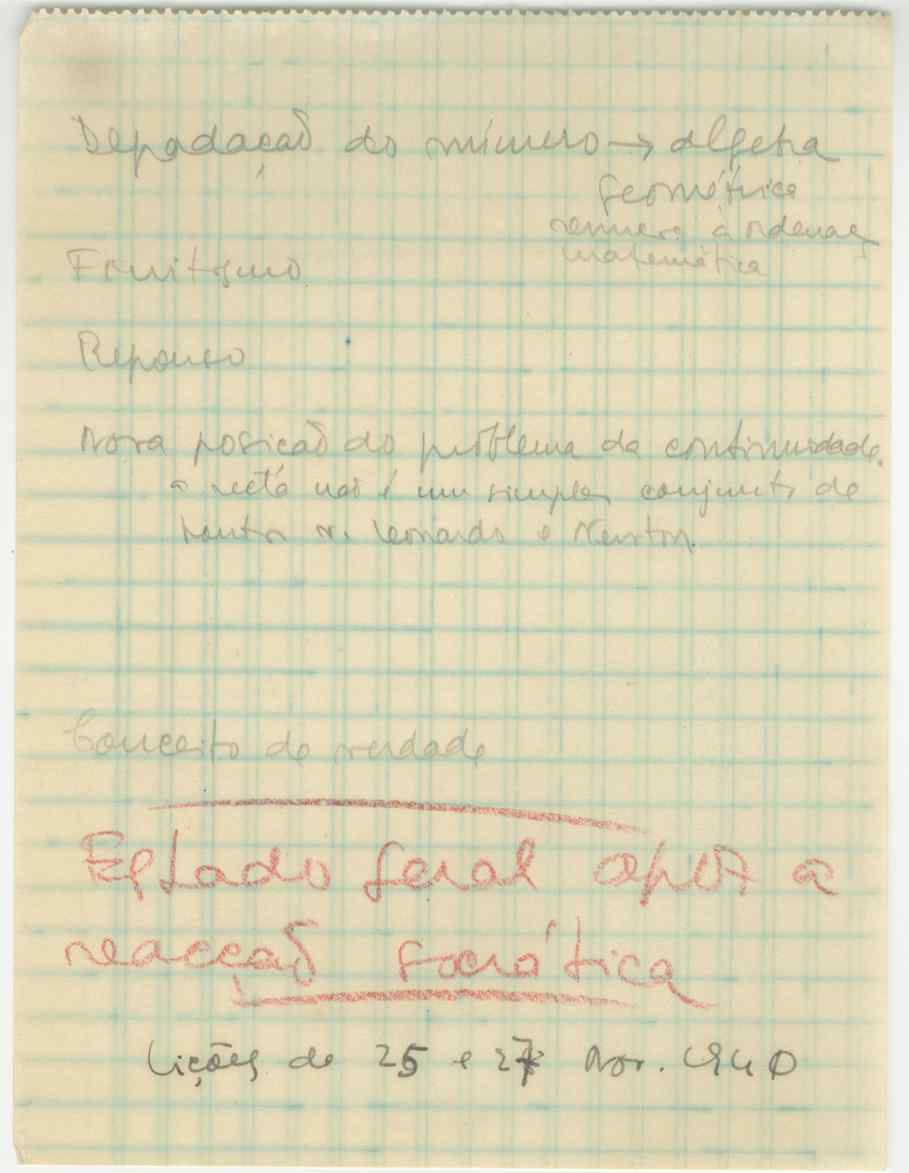 Degradação do número → algebra
geométrica
renunc. à ordenaç
matemática
Finitismo
Repouso
Nova posicaõ do problema da continuidade.
a recta naõ é um simples conjunto de
pontos v. Leonardo e Newton.
Conceito de verdade
Estado geral após a
reacçaõ socrática
Lições de 25 e 27 Nov. 1940